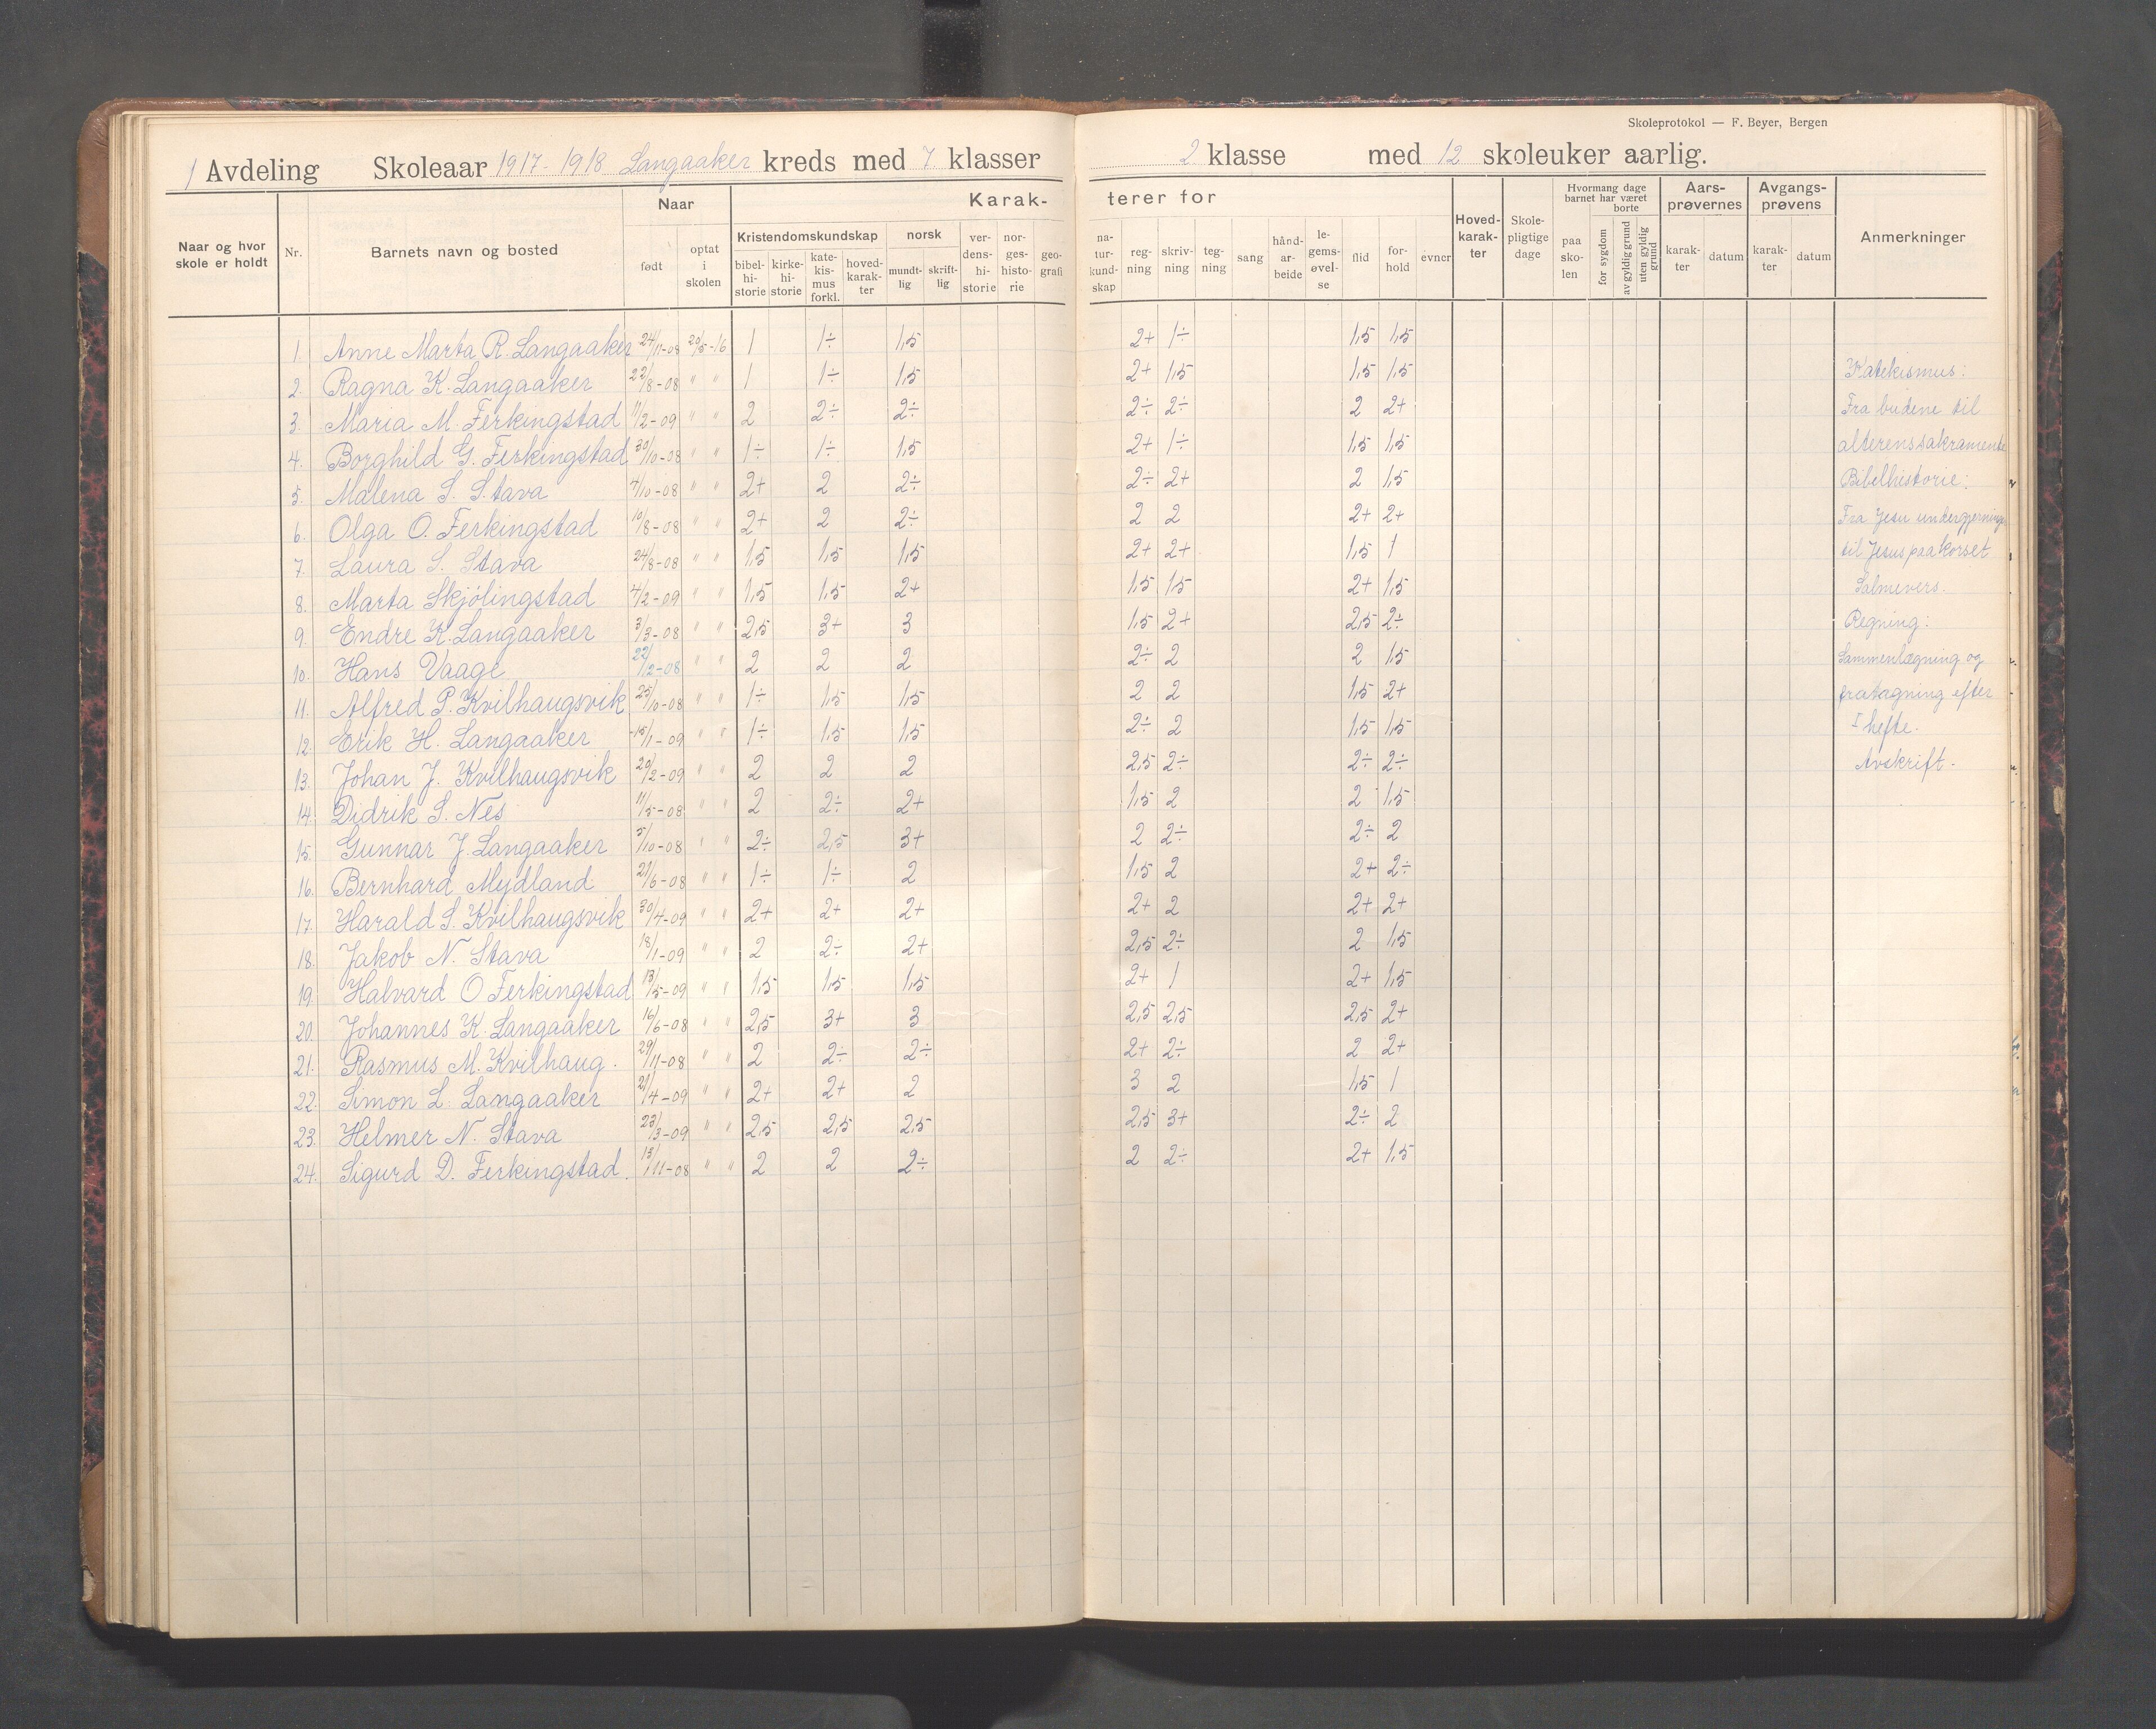 Skoleprotokol — F. Beyer, Bergen
1 Avdeling Skoleaar 1917-1918 Langaaker kreds med 7 klasser 2 klasse med 12 skoleuker aarlig.
Naar og hvor skole er holdt Nr. Barnets navn og bosted Naar født optat i skolen Karakterer for Kristendomskundskap bibelhistorie kirkehistorie katekismus forkl. hovedkarakter norsk mundtlig skriftlig verdenshistorie norgeshistorie geografi naturkundskap regning skrivning tegning sang håndarbeide legemsøvelse flid forhold evner Hovedkarakter Skolepligtige dage Hvormang dage barnet har været borte paa skolen for sygdom av gyldig grund uten gyldig grund Aarsprøvernes karakter datum Avgangsprøvens karakter datum Anmerkninger
1. Anne Marta R. Langaaker 24/11-08 20/5-16 1 1÷ 1,5 2+ 1÷ 1,5 1,5
2. Ragna K. Langaaker 22/8-08 " " 1 1÷ 1,5 2+ 1,5 1,5 1,5 Katekismus:
3. Maria M. Ferkingstad 11/2-09 " " 2 2÷ 2÷ 2÷ 2÷ 2 2+ Fra budene til
4. Borghild G. Ferkingstad 30/10-08 " " 1÷ 1÷ 1,5 2+ 1÷ 1,5 1,5 alterenssakramente
5. Malena S. Stava 4/10-08 " " 2+ 2 2÷ 2÷ 2+ 2 1,5 Bibelhistorie:
6. Olga O. Ferkingstad 10/8-08 " " 2+ 2 2÷ 2 2 2+ 2+ Fra Jesu undergjerninge
7. Laura S. Stava 24/8-08 " " 1,5 1,5 1,5 2+ 2+ 1,5 1 til Jesus paa korset
8. Marta Skjølingstad 4/2-09 " " 1,5 1,5 2+ 1,5 1,5 2+ 1,5 Salmevers.
9. Endre K. Langaaker 3/3-08 " " 2,5 3+ 3 1,5 2+ 2,5 2÷ Regning:
10. Hans Vaage 22/12-08 " " 2 2 2 2÷ 2 2 1,5 Sammenlægning og
11. Alfred P. Kvilhaugsvik 25/10-08 " " 1÷ 1,5 1,5 2 2 1,5 2+ fratagning efter
12. Erik H. Langaaker 15/1-09 " " 1÷ 1,5 1,5 2÷ 2 1,5 1,5 I hefte.
13. Johan J. Kvilhaugsvik 20/2-09 " " 2 2 2 2,5 2÷ 2÷ 2÷ Avskrift.
14. Didrik S. Nes 11/5-08 " " 2 2÷ 2+ 1,5 2 2 1,5
15. Gunnar J. Langaaker 5/10-08 " " 2÷ 2,5 3+ 2 2÷ 2÷ 2
16. Bernhard Mydland 21/6-08 " " 1÷ 1÷ 2 1,5 2 2+ 2÷
17. Harald S. Kvilhaugsvik 30/4-09 " " 2+ 2+ 2+ 2+ 2 2+ 2+
18. Jakob N. Stava 18/1-09 " " 2 2÷ 2+ 2,5 2÷ 2 1,5
19. Halvard O Ferkingstad 13/5-09 " " 1,5 1,5 1,5 2+ 1 2+ 1,5
20. Johannes K. Langaaker 16/6-08 " " 2,5 3+ 3 2,5 2,5 2,5 2+
21. Rasmus M. Kvilhaug. 29/11-08 " " 2 2÷ 2÷ 2+ 2÷ 2 2+
22. Simon L. Langaaker 21/4-09 " " 2+ 2+ 2 3 2 1,5 1
23. Helmer N. Stava 23/3-09 " " 2,5 2,5 2,5 2,5 3+ 2÷ 2
24. Sigurd D. Ferkingstad. 13/11-08 " " 2 2 2÷ 2 2÷ 2+ 1,5